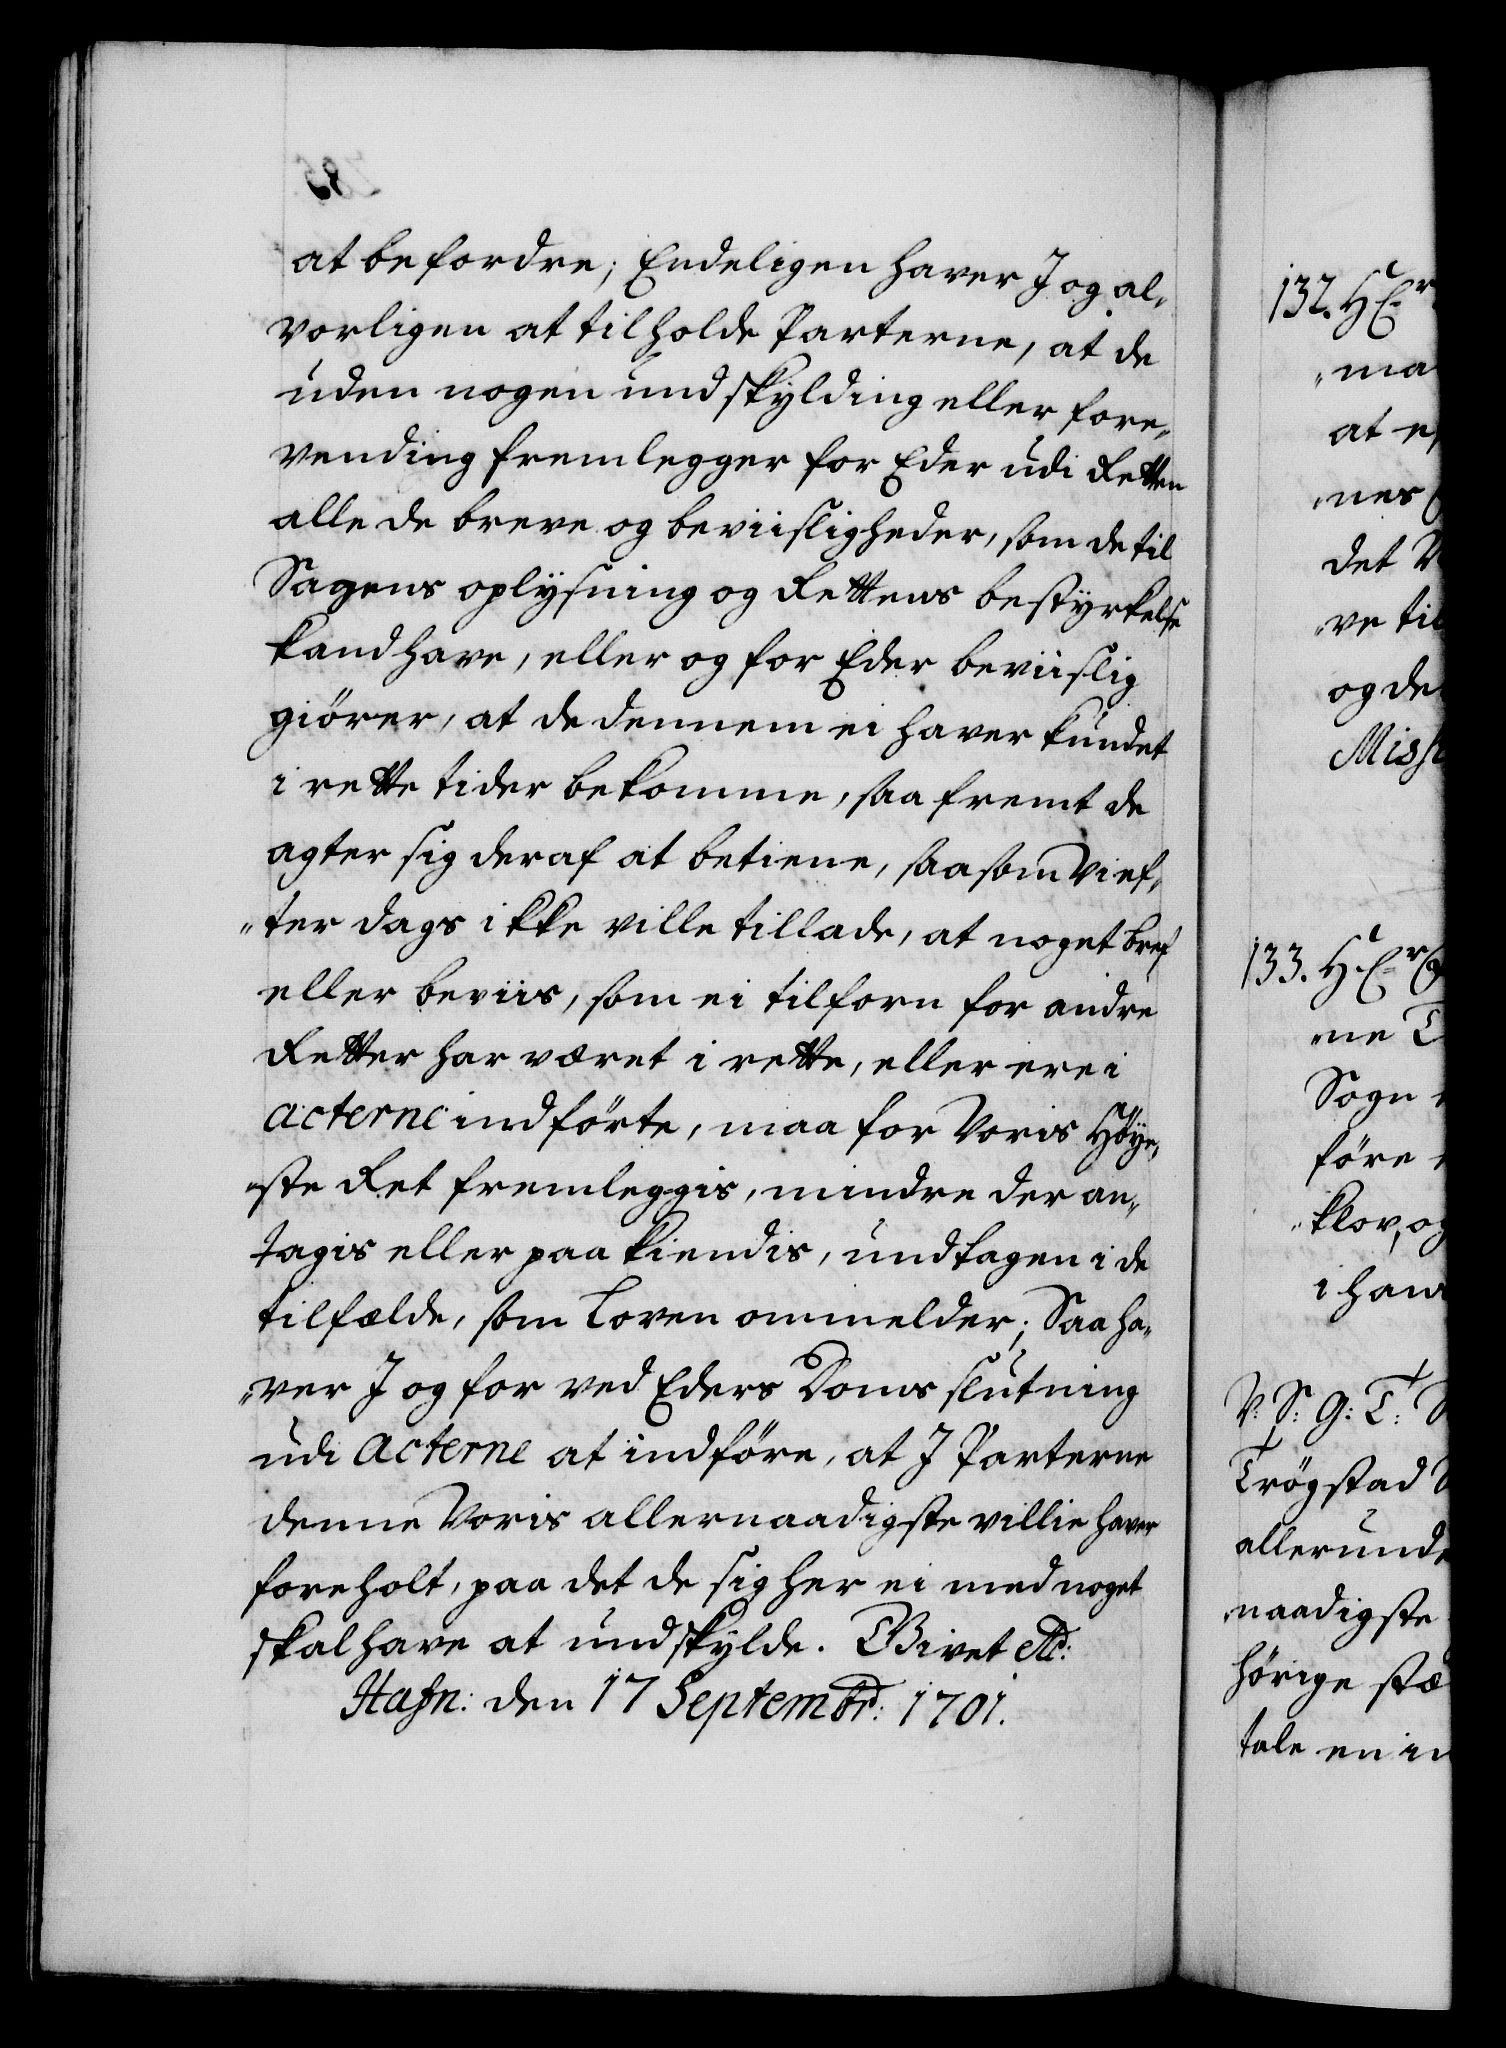 at befordre; Endeligen haver J og al-
vorligen at tilholde Parterne, at de
uden nogen undskylding eller fore-
vending fremlegger for Eder udi Retten
alle de breve og beviisligheder, som de til
Sagens oplysning og Rettens bestyrkelse
kand have, eller og for Eder beviislig
giörer, at de dennem ei haver kundet
i rette tider bekomme, saa fremt de
agter sig deraf at betiene, saasom Vi ef-
"ter dags ikke ville tillade, at noget bref
eller beviis, som ei tilforn for andre
Retter har været i rette, eller ere i
acterne indförte, maa for Voris Höye-
"ste Ret fremleggis, mindre der an-
tagis eller paakiendis, undtagen i de
tilfælde, som Loven ommelder; Saa ha-
"ver J og for ved Eders Doms slutning
udi acterne at indföre, at J Parterne
denne Voris allernaadigste villie haver
foreholt, paa det de sig her ei med noget
skal have at undskylde. Givet etc:
Hafn: den 17 Septembr: 1701.
132. HEr
"ma
at
"nes
det
"ve til
og de
Miss
133. HEr
"ne
Sogn
före
"klov, og
i hans
V: S: G: T:
Trögstad
allerunde
"naadigste
hörige stæ
tale en in